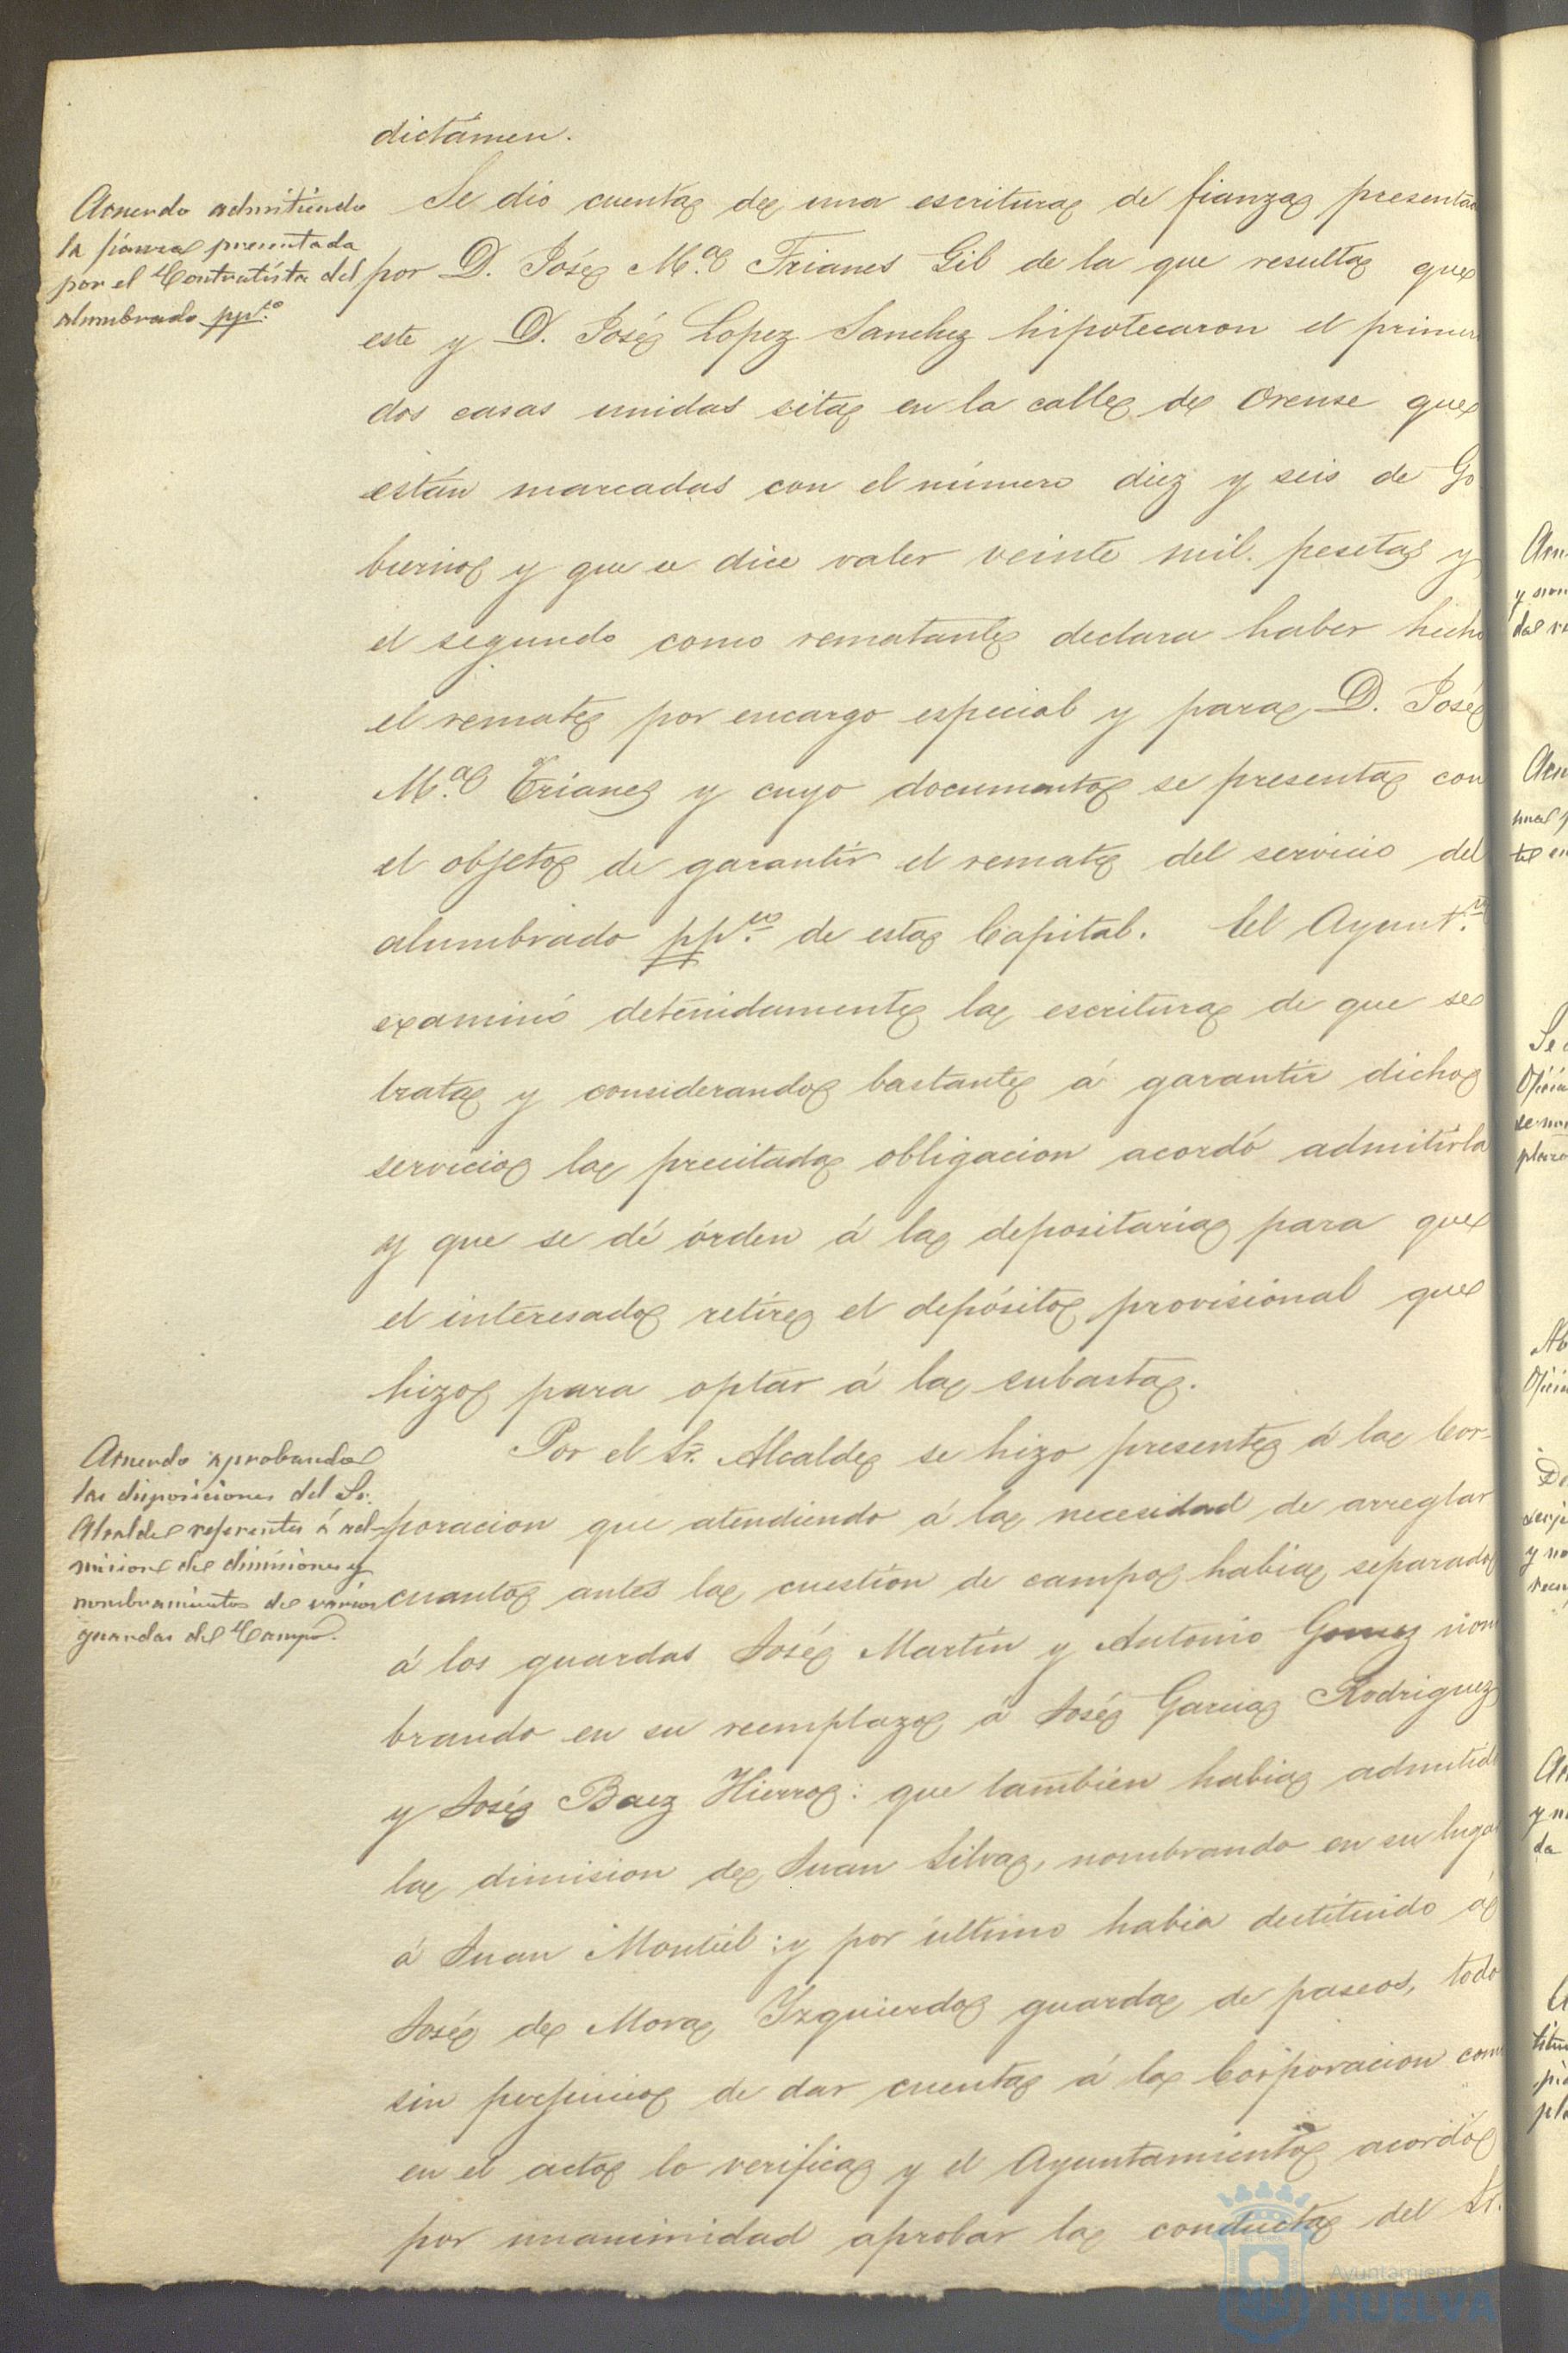 dictámen.
Acuerdo admitiendo
la fianza presentada
por el Contratista del
alumbrado pp.co
Se dió cuenta de una escritura de fianza presentada
por D. José M.a Trianes Gil de la que resulta que
este y D. José Lopez Sanchez hipotecaron el primero
dos casas unidas sitas en la calle de Orense que
están marcadas con el número diez y seis de Go
bierno y que se dice valer veinte mil pesetas y
el segundo como rematante declara haber hecho
el remate por encargo especial y para D. José
M.a Trianes y cuyo documento se presenta con
el objeto de garantir el remate del servicio del
alumbrado pp.co de esta Capital. El Ayunt.o
examinó detenidamente la escritura de que se
trata y considerando bastante á garantir dicho
servicio la precitada obligacion acordó admitirla
y que se dé órden á la depositaría para que
el interesado retire el depósito provisional que
hizo para optar á la subasta.
Acuerdo aprobando
las disposiciones del Sr.
Alcalde referentes á ad-
misione de dimisiones y
nombramientos de varios
guardas del Campo.
Por el Sr. Alcalde se hizo presente á la Cor-
poracion que atendiendo á la necesidad de arreglar
cuanto antes la cuestion de campo habia separado
á los guardas José Martín y Antonio Gomez nom
brando en su reemplazo á José Garcia Rodriguez
y José Baez Hierro: que tambien habia admitido
la dimision de Juan Silva, nombrando en su lugar
á Juan Montiel: y por último habia destituido á
José de Mora Yzquierdo guarda de paseos, todo
sin perjuicio de dar cuenta á la Corporacion como
en el acto lo verifica y el Ayuntamiento acordó
por unanimidad aprobar la conducta del Sr.
Ayuntamiento de
HUELVA